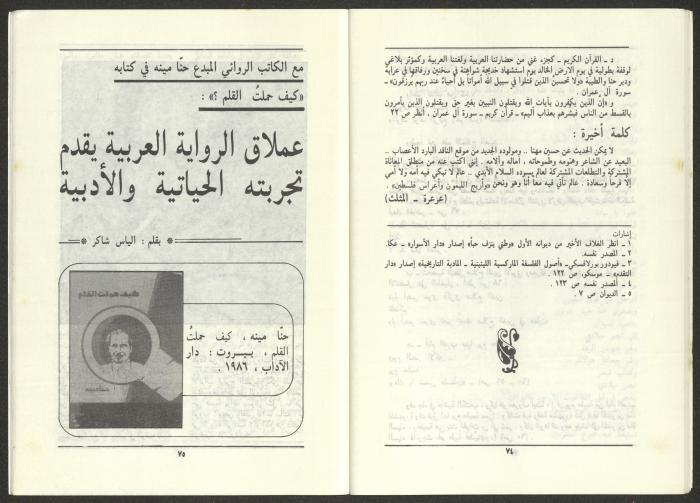 د ـ القرآن الكريم ـ كجزء غني من حضارتنا العربية ولغتنا العربية وكمؤثر بلاغي
لوقفة بطولية في يوم الارض الخالد يوم استشهاد خديجة شواهنة في سخنين ورفاقها في عرابة
ودير حنا والطيبة «ولا تحسبن الذين قتلوا في سبيل الله أمواتاً بل أحياء عند ربهم يرزقون» ـ
سورة آل عمران .
و «إن الذين يكفرون بآيات الله ويقتلون النبيين بغير حق ويقتلون الذين يأمرون
بالقسط من الناس فبشرهم بعذاب أليم» ـ قرآن كريم ـ سورة آل عمران . أنظر ص ٢٢
كلمة أخيرة :
لا يمكن الحديث عن حسين مهنا .. ومولوده الجديد من موقع الناقد البارد الأعصاب ..
البعيد عن الشاعر وهمومه وطموحاته ، آماله وآلامه .. إنني أكتب عنه من منطلق المعاناة
المشتركة والتطلعات المشتركة لعالم يسوده السلام الأبدي .. عالم لا نبكي فيه أمه ولا أمي
إلا فرحاً وسعادة . عالم نأتي فيه معاً أنا وهو ونحن «وأريج الليمون وأعراس فلسطين» .
(عرعرة ـ المثلث)
إشارات
١ ـ انظر الغلاف الأخير من ديوانه الأول «وطني ينزف حباً» إصدار «دار الأسوار» ـ عكا.
٢ ـ المصدر نفسه.
٣ ـ فيودور بورلاتسكي، «أصول الفلسفة الماركسية اللينينية ـ المادية التاريخية» إصدار «دار
التقدم» ـ موسكو، ص ١٢٢ .
٤ ـ المصدر نفسه ص ١٢٣ .
٥ ـ الديوان ص ٧ .
٧٤
مع الكاتب الروائي المبدع حنّا مينه في كتابه
«كيف حملتُ القلم ؟» :
عملاق الرواية العربية يقدم
تجربته الحياتية والأدبية
بقلم : الياس شاكر
كيف حملت القلم
حنا مينه
حنّا مينه، كيف حملتُ
القلم ، بيروت : دار
الآداب ، ١٩٨٦ .
٧٥